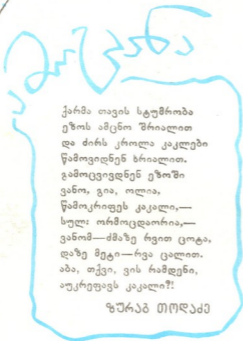 ამოცანა
ქარმა თავის სტუმრობა
ეზოს ამცნო შრიალით
და ძირს კროლა კაკლები
წამოვიდნენ ხრიალით.
გამოცვივდნენ ეზოში
ვანო, გია, ოლია,
წამოკრიფეს კაკალი,—
სულ: ორმოცდაორია,—
ვანომ—ძმაზე რვით ცოტა,
დაზე მეტი—რვა ცალით.
აბა, თქვი, ვის რამდენი,
აუკრეფავს კაკალი?!
ზურაბ თოდაძე